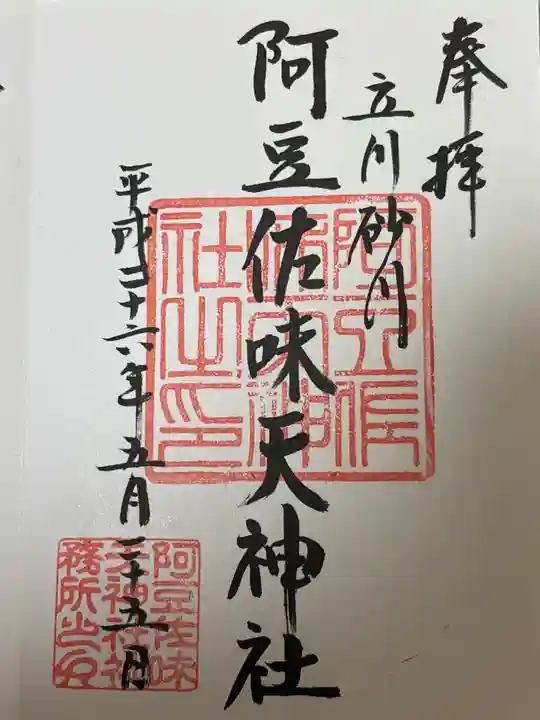 奉拝
立川砂川
阿豆佐味天神社
平成二十六年五月二十五日
阿豆佐味
天神社社
務所之印